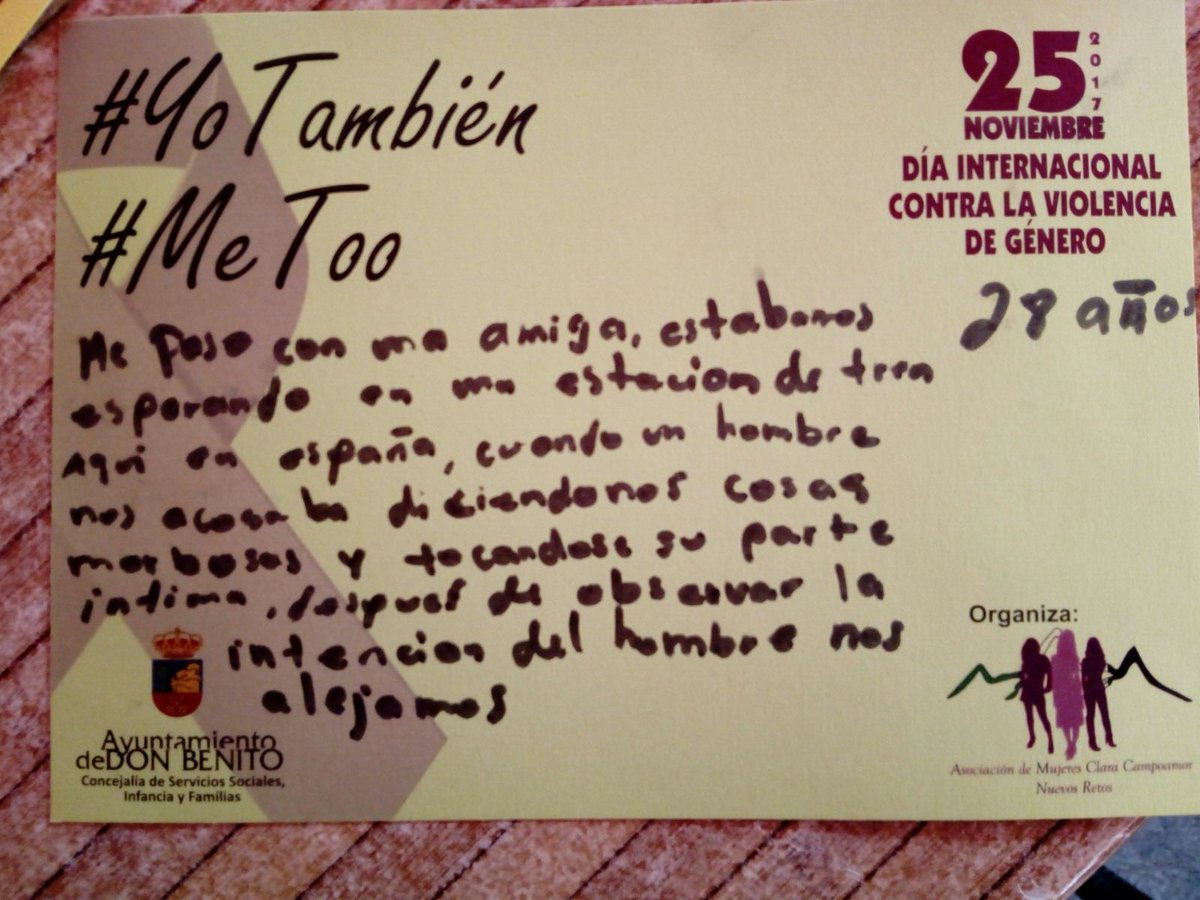 #YoTambién
#MeToo
25
2017
NOVIEMBRE
DÍA INTERNACIONAL
CONTRA LA VIOLENCIA
DE GÉNERO
28 años
Me paso con una amiga, estabamos
esperando en una estacion de tren
Aqui en españa, cuando un hombre
nos acosaba diciendonos cosas
morbosas y tocandose su parte
intima, despues de observar la
intencion del hombre nos
alejamos
Ayuntamiento
de DON BENITO
Concejalía de Servicios Sociales,
Infancia y Familias
Organiza:
Asociación de Mujeres Clara Campoamor
Nuevos Retos